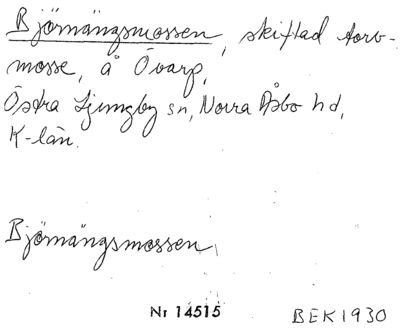 Björnängsmossen, skiftad torv-
mosse, å Övarp,
Östra Ljungby sn, Norra Åsbo hd,
K-län.
Björnängsmossen
Nr 14515 BEK1930